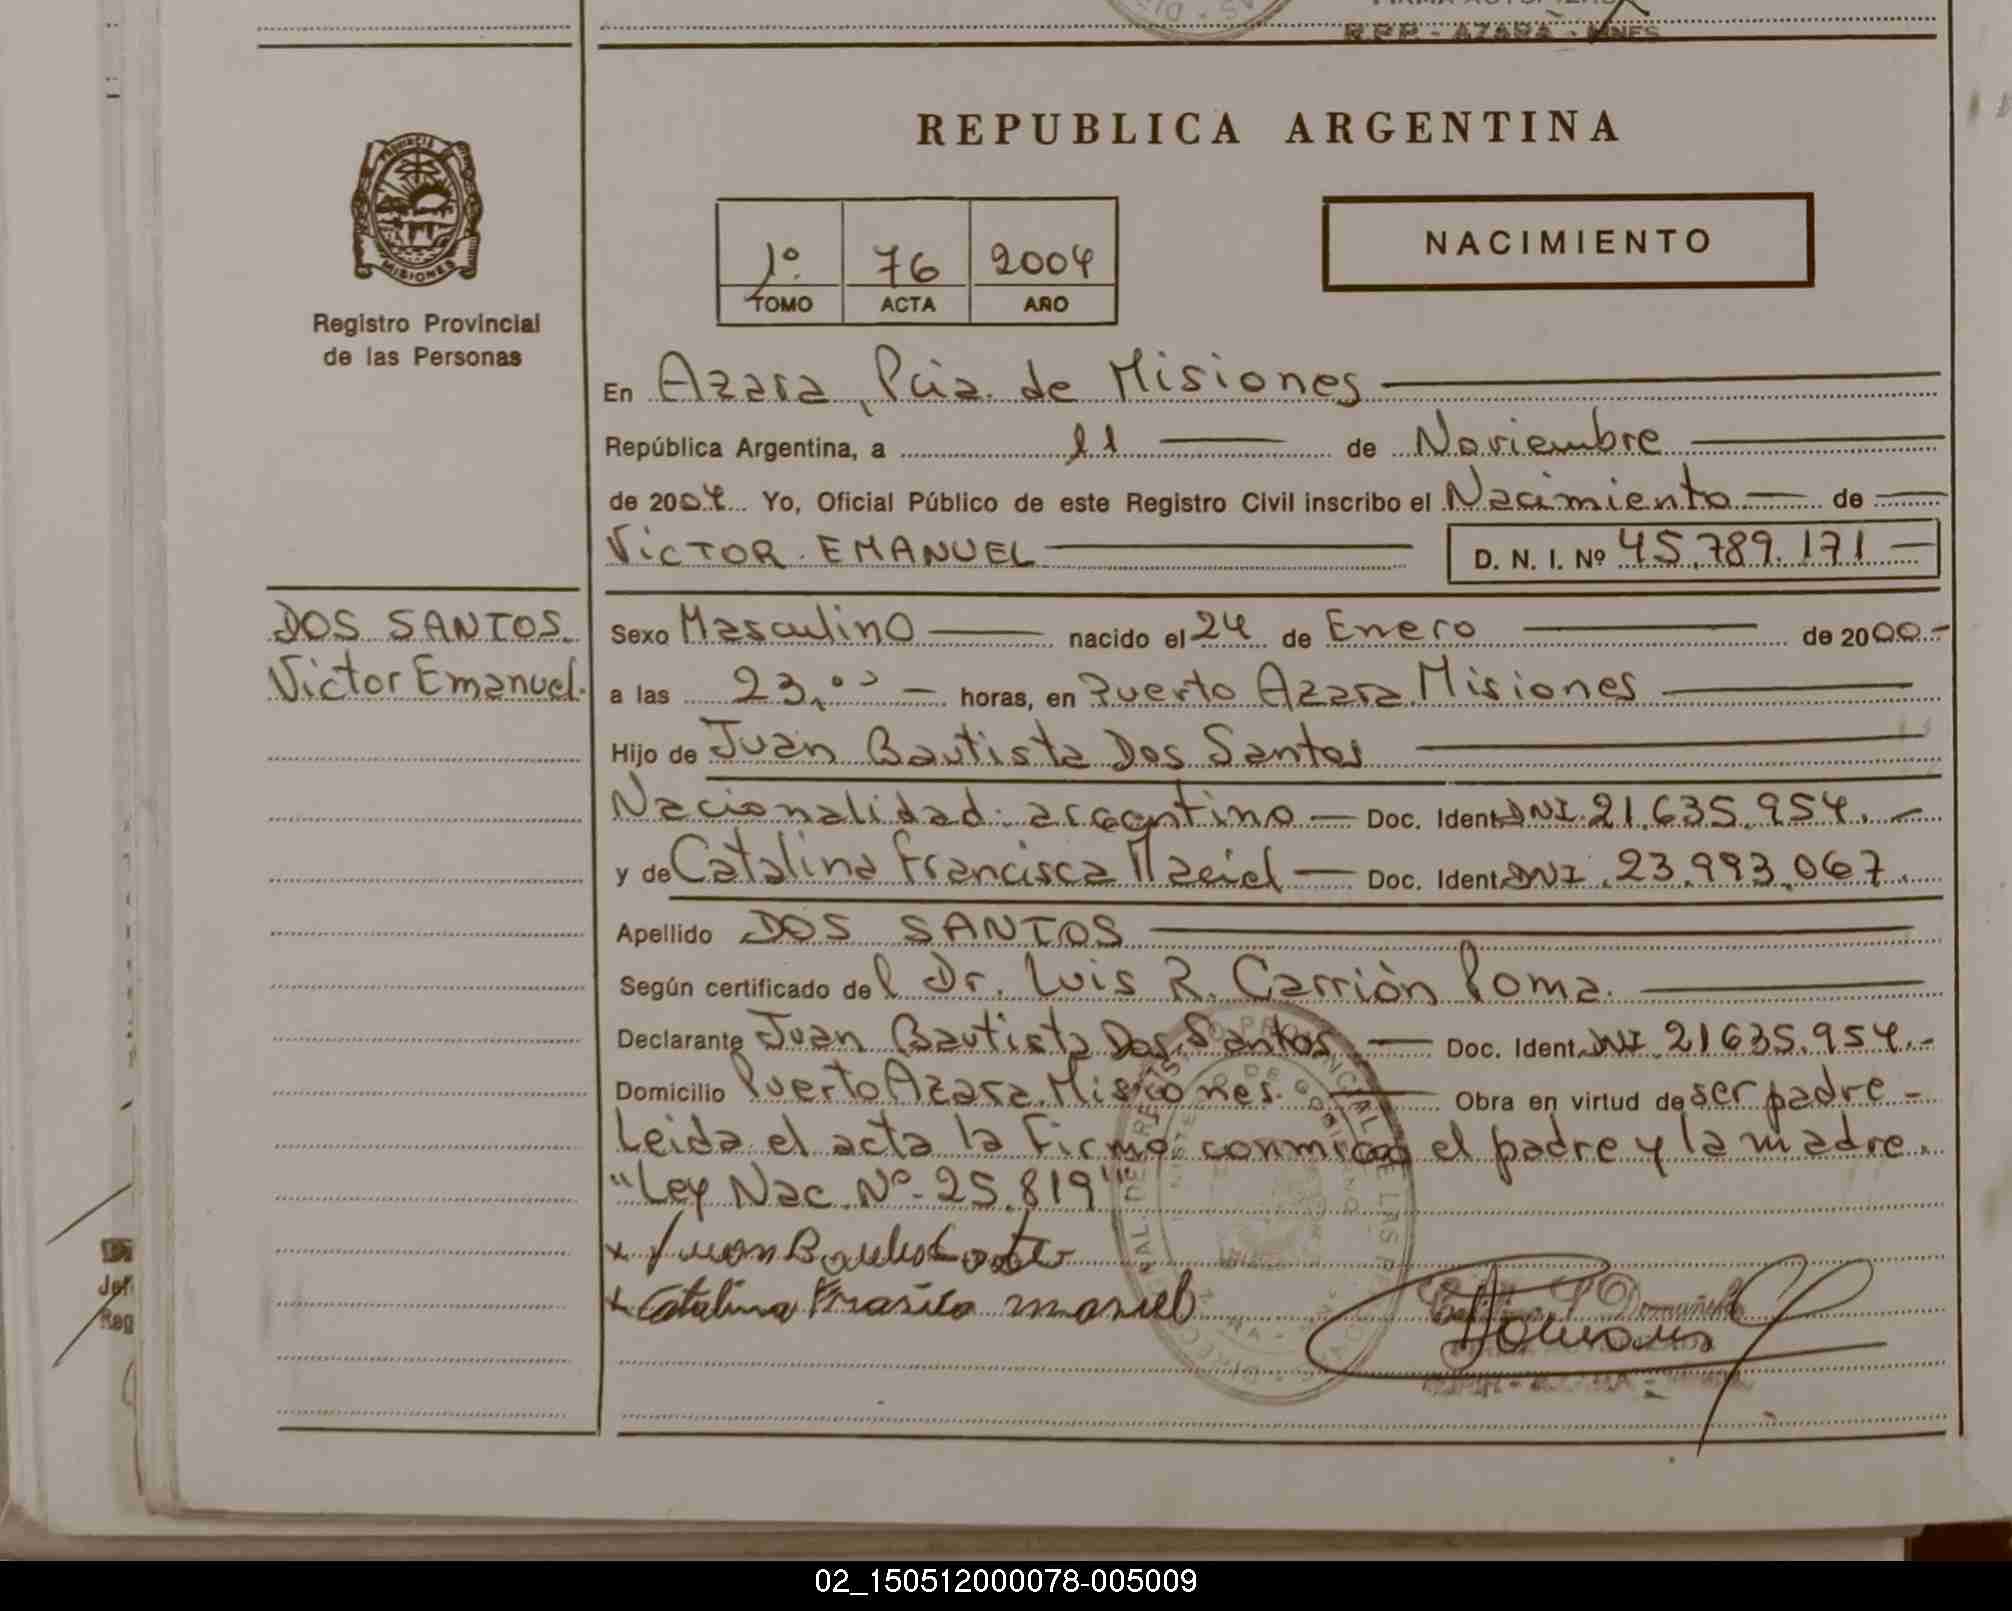 R.P.P. - AZARA - MNES
REPUBLICA ARGENTINA
PROVINCIA
MISIONES
Registro Provincial
de las Personas
1º 76 2004
TOMO ACTA AÑO
NACIMIENTO
En Azara, Pcia. de Misiones
República Argentina, a 11 de Noviembre
de 2004 Yo, Oficial Público de este Registro Civil inscribo el Nacimiento de
VICTOR EMANUEL D. N. I. Nº 45.789.171
DOS SANTOS
Victor Emanuel.
Sexo Masculino nacido el 24 de Enero de 2000.-
a las 23,00 horas, en Puerto Azara Misiones
Hijo de Juan Bautista Dos Santos
Nacionalidad: argentino Doc. Ident. DNI. 21.635.954.
y de Catalina Francisca Maciel Doc. Ident. DNI. 23.993.067.
Apellido DOS SANTOS
Según certificado del Dr. Luis R. Carriòn Poma.
Declarante Juan Bautista Dos Santos Doc. Ident. DNI 21635.954.-
Domicilio Puerto Azara. Misiones. Obra en virtud de ser padre -
Leida el acta la firma conmigo el padre y la madre.
"Ley Nac. Nº 25.819"
02_150512000078-005009